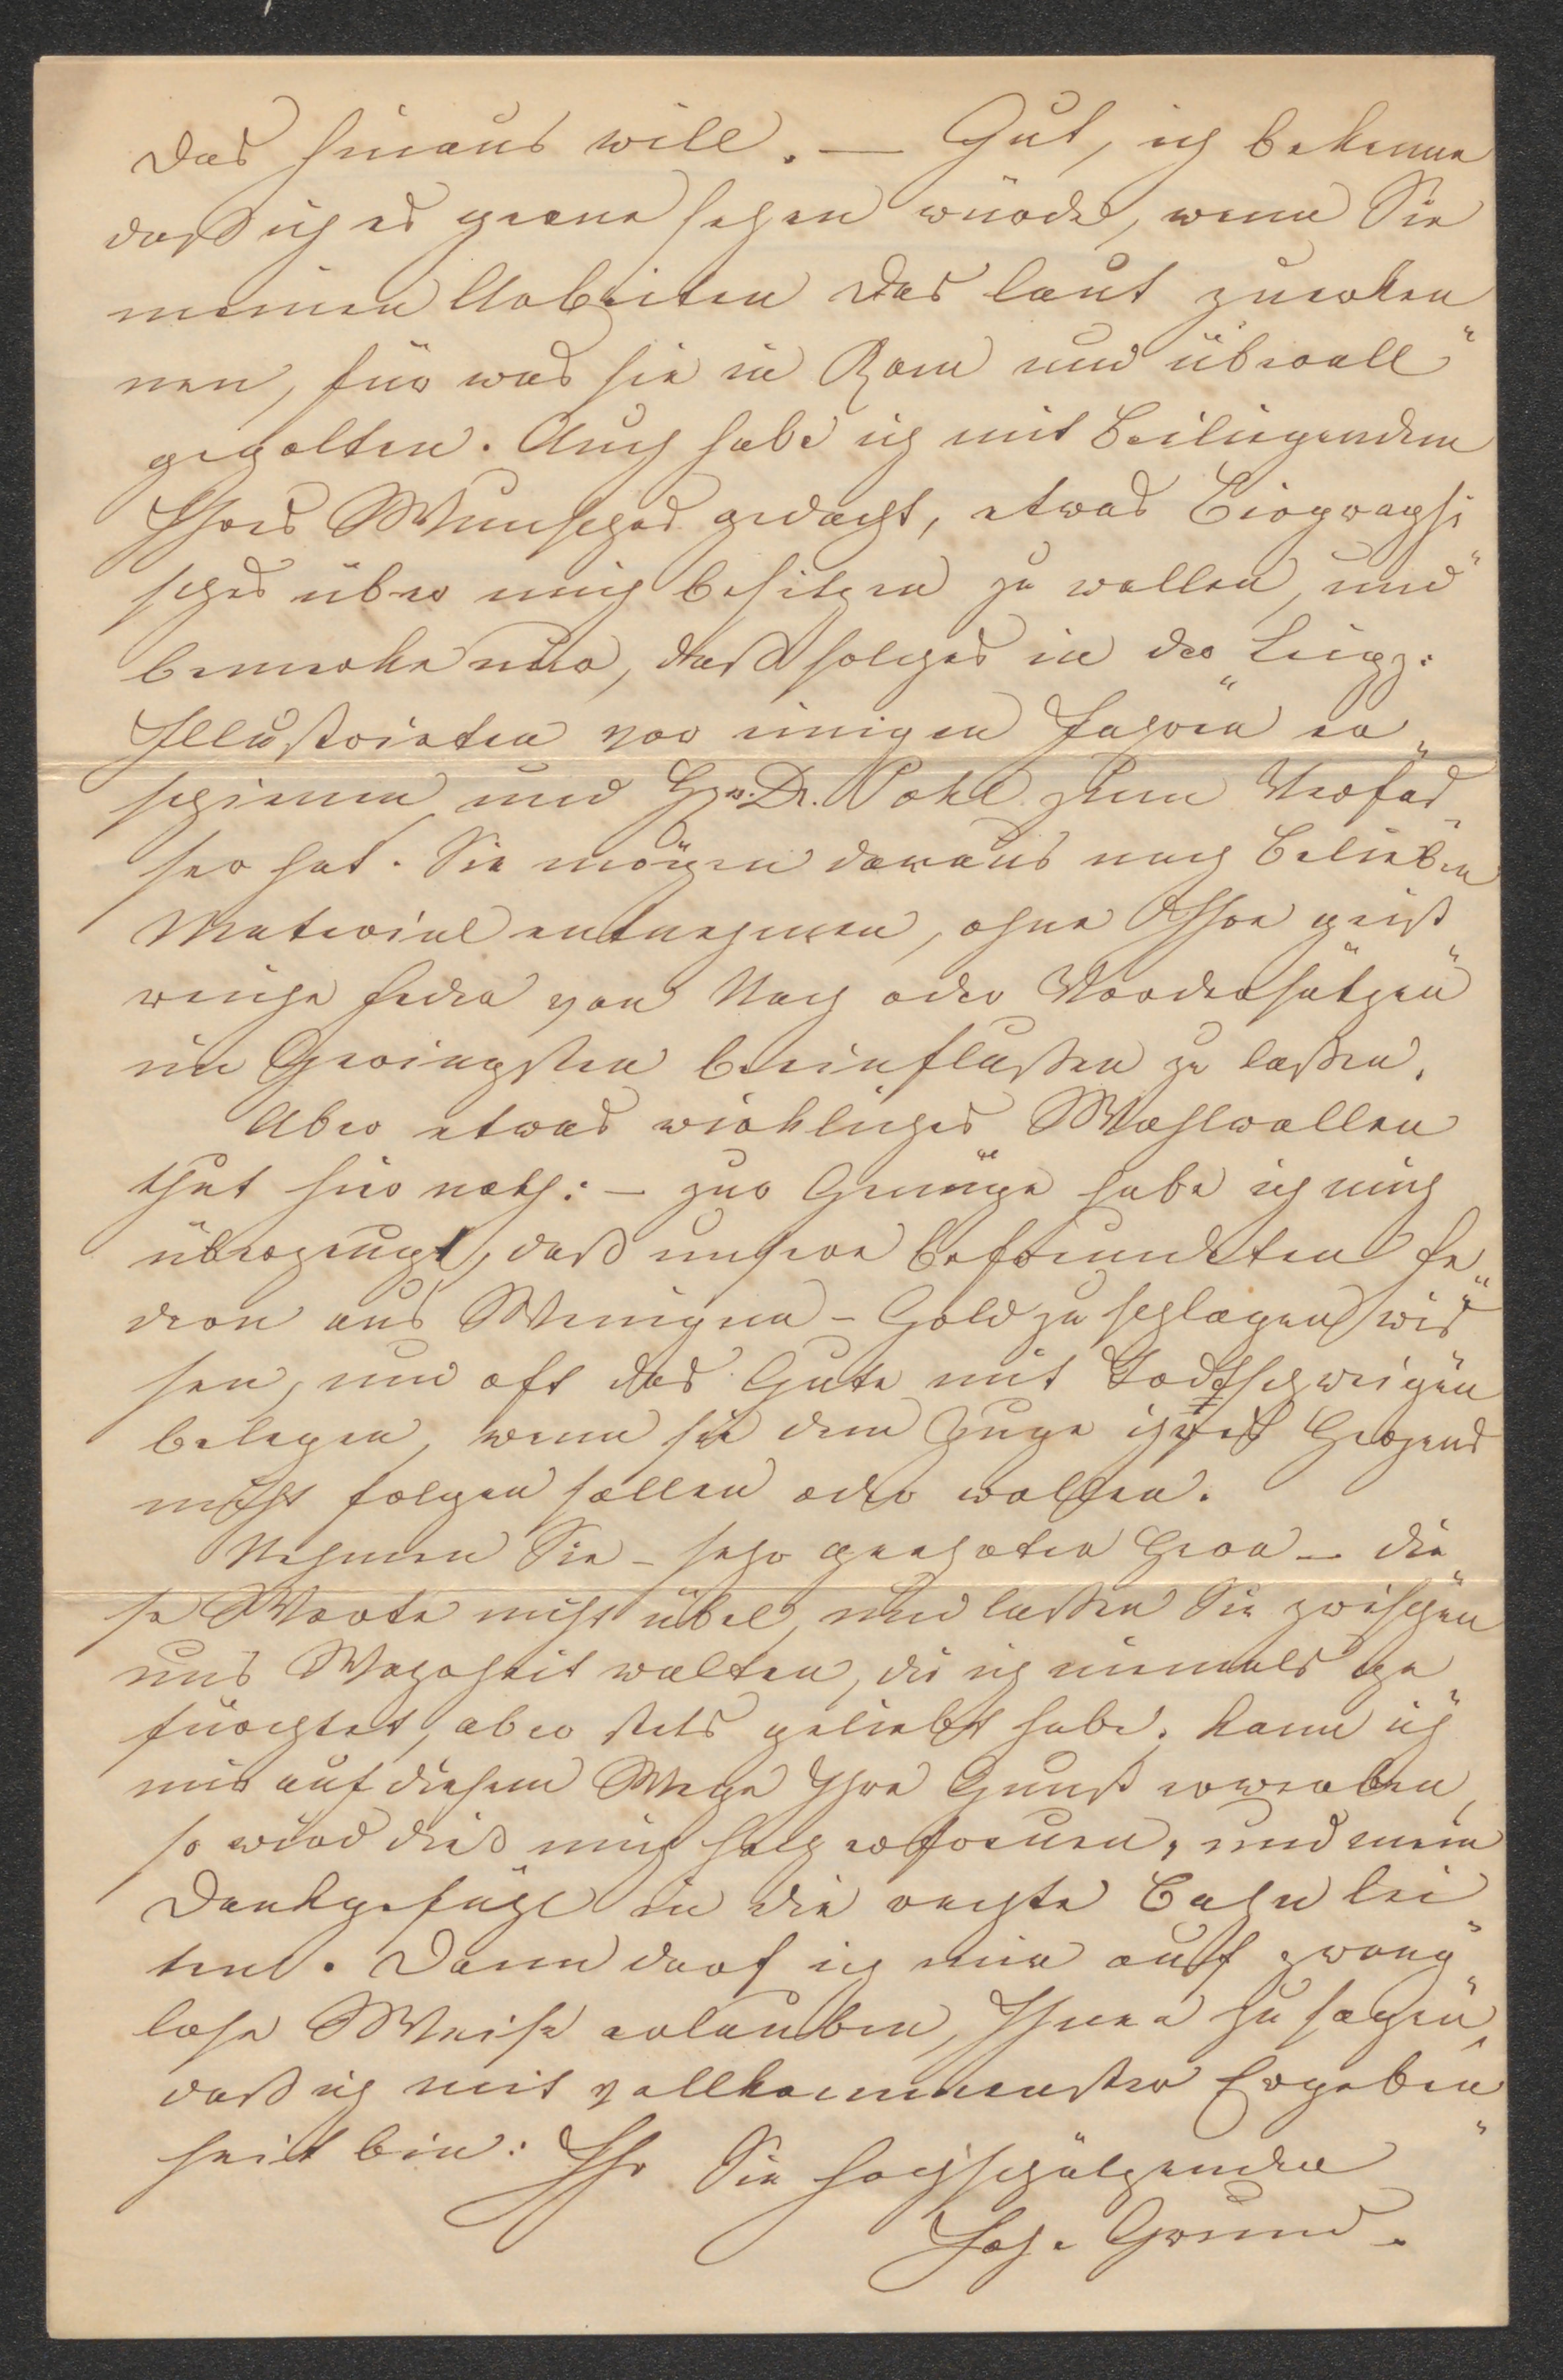 das hinaus will. — Gut, ich bekenne
daß ich es gerne sehen würde, wenn Sie
meinen Arbeiten das laut zuerken„
nen, für was sie in Rom und überall
gegolten. Auch habe ich mit Beiliegendem
Ihres Wunsches gedacht, etwas Biographi„
sches über mich besitzen zu wollen, und
bemerke nur, daß solches in der Leipz:
Illustrirten vor einigen Jahren er„
schienen und Hr. Dr. Pohl zum Verfas„
ser hat. Sie mögen daraus nach Belieben
Material entnehmen, ohne Ihre geist„
reiche Feder von Nach oder Vordersätzen
im Geringsten beeinflußen zu laßen.
Aber etwas wirkliches Wohlwollen
thut hier noth: — zur Genüge habe ich mich
überzeugt, daß unsere befreundeten Fe„
dern aus Wenigem – Gold zu schlagen wis„
sen, und oft das Gute mit Todtschweigen
belegen, wenn sie dem Zuge ihres Herzens
nicht folgen sollen oder wollen.
Nehmen Sie – sehr geehrter Herr – die„
se Worte nicht übel, und laßen Sie zwischen
uns Wahrheit walten, die ich niemals ge„
fürchtet, aber stets geliebt habe. Kann ich
mir auf diesem Wege Ihre Gunst erwerben,
so wird dieß mich hoch erfreuen, und mein
Dankgefühl in die rechte Bahn lei„
ten. Dann darf ich mir auf zwang„
lose Weise erlauben, Ihnen zu sagen,
daß ich mit vollkommenster Ergeben„
heit bin: Ihr Sie hochschätzender
Joh. Grund.